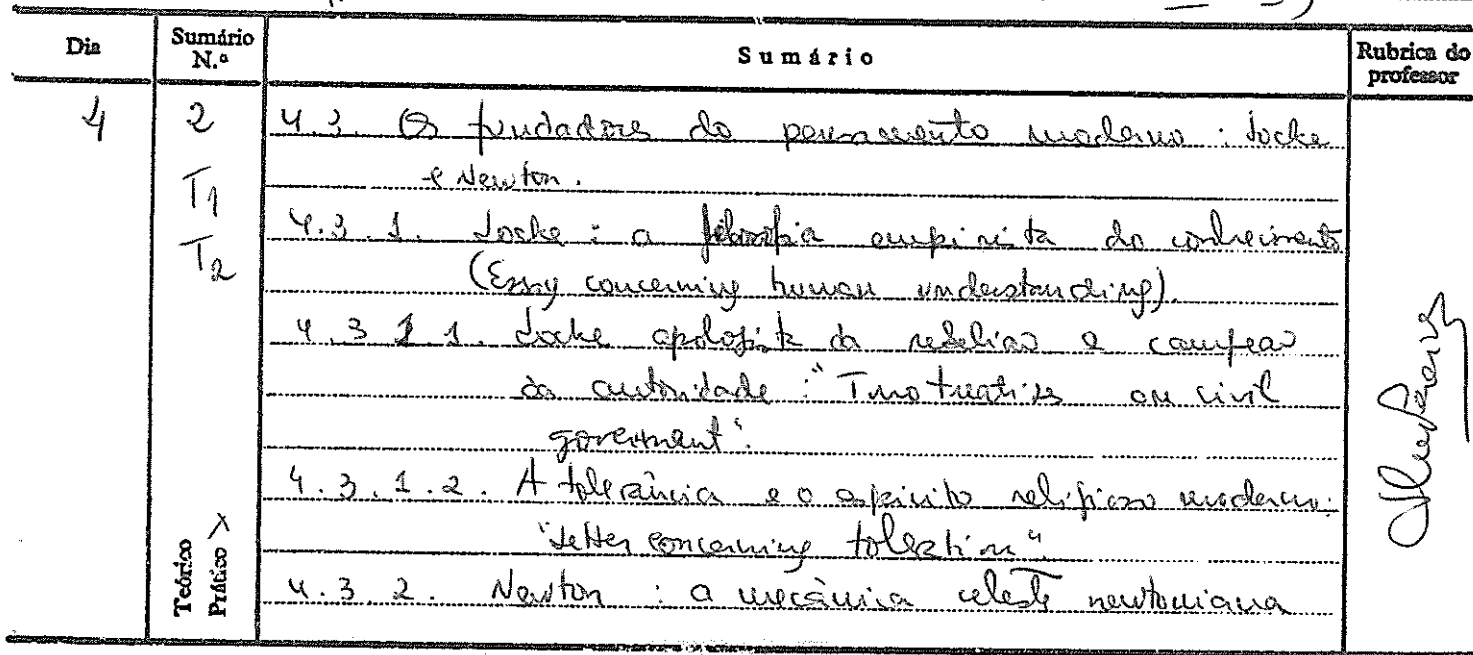 Dia
Sumário N.º
Sumário
Rubrica do professor
4
2
T1
T2
Teórico
Prático X
4.3. Os fundadores do pensamento moderno: Locke
e Newton.
4.3.1. Locke: a filosofia empirista do conhecimento
(Essay concerning human understanding).
4.3.1.1. Locke apologista da rebelião e campeão
da autoridade: "Two treatises on civil
government".
4.3.1.2. A tolerância e o espírito religioso moderno:
"Letter concerning toleration".
4.3.2. Newton: a mecânica celeste newtoniana